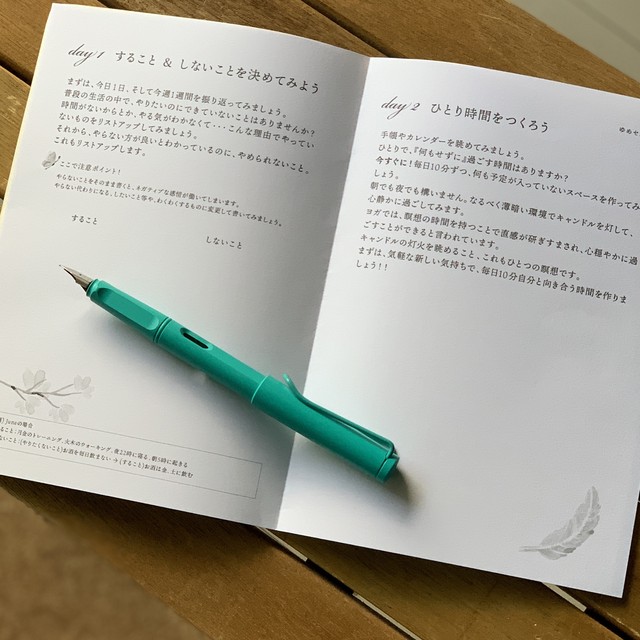 day 1 すること & しないことを決めてみよう
まずは、今日1日、そして今週1週間を振り返ってみましょう。
普段の生活の中で、やりたいのにできていないことはありますか?
時間がないからとか、やる気がわかなくて・・・こんな理由でやってい
ないものをリストアップしてみましょう。
それから、やらない方が良いとわかっているのに、やめられないこと。
これもリストアップします。
ここで注意ポイント!
やらないことをそのまま書くと、ネガティブな感情が働いてしまいます。
やらない代わりになる、したいこと等や、わくわくするものに変更して書いてみましょう。
すること
しないこと
Juneの場合
ること:月金のトレーニング、火木のウォーキング、夜22時に寝る、朝5時に起きる
ないこと:(やりたくないこと)お酒を毎日飲まない→(すること)お酒は金、土に飲む
day 2 ひとり時間をつくろう
手帳やカレンダーを眺めてみましょう。
ひとりで、『何もせずに』過ごす時間はありますか?
今すぐに!毎日10分ずつ、何も予定が入っていないスペースを作ってみ
ましょう。
朝でも夜でも構いません。なるべく薄暗い環境でキャンドルを灯して、
心静かに過ごしてみます。
ヨガでは、瞑想の時間を持つことで直感が研ぎすまされ、心穏やかに過
ごすことができると言われています。
キャンドルの灯火を眺めること、これもひとつの瞑想です。
まずは、気軽な新しい気持ちで、毎日10分自分と向き合う時間を作りま
しょう!!